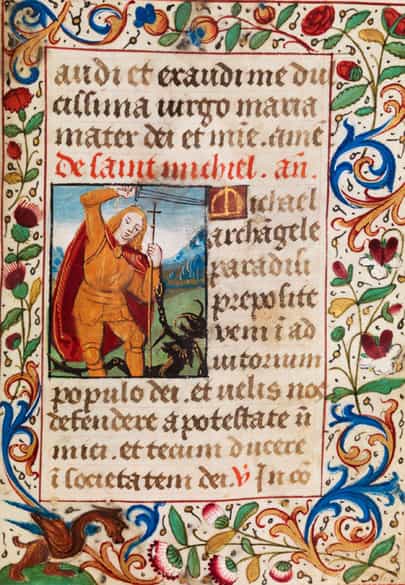 audi et exaudi me dul
cissima uirgo maria
mater dei et mie. amē
de saint michiel. an.
Michael
archāgele
paradisi
preposite
veni ī ad
iutorium
populo dei. et uelis nos
defendere a potestate īi
mici. et tecum ducere
ī societatem dei. V In cō